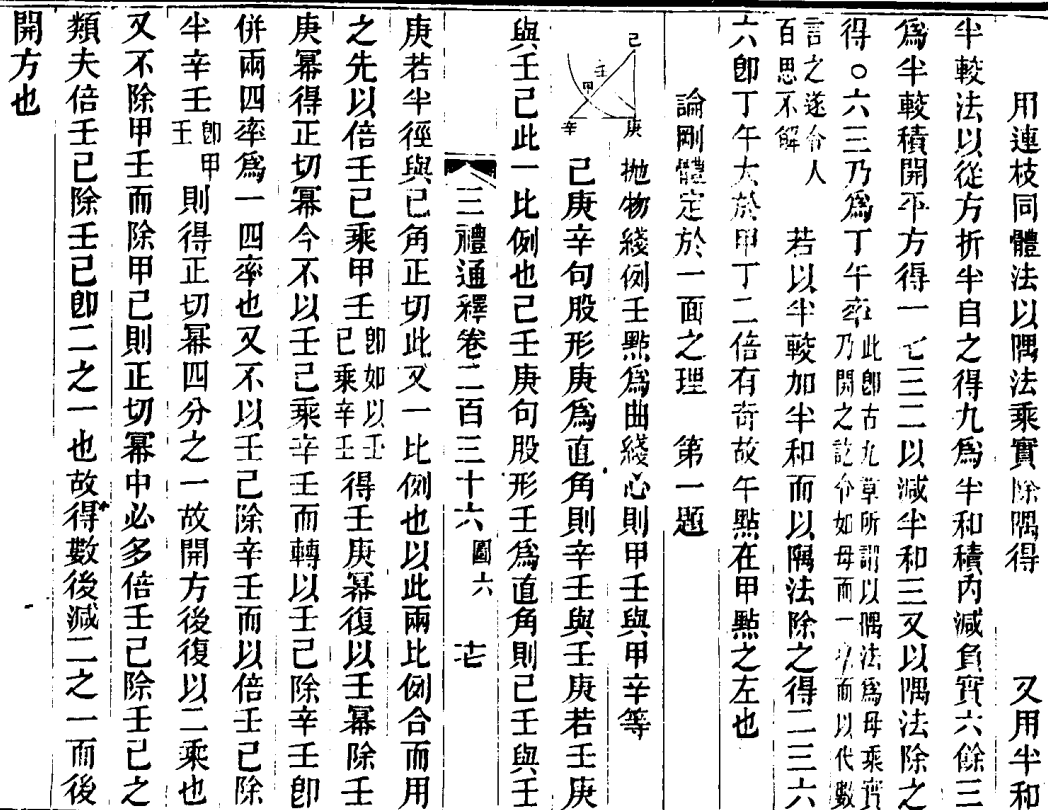 用連枝同體法以隅法乘實除隅得 又用半和
半較法以從方折半自之得九爲半和積內減負實六餘三
爲半較積開平方得一七三二以減半和三又以隅法除之
得〇六三乃爲丁午率此卽古九章所謂以隅法爲母乘實乃開之訖令如母而一
言之遂令人百思不解 若以半較加半和而以隅法除之得二三六
六卽丁午大於甲丁二倍有奇故午點在甲點之左也
論剛體定於一面之理 第一題
己 壬 甲 辛 庚
拋物綫例壬點爲曲綫心則甲壬與甲辛等
己庚辛句股形庚爲直角則辛壬與壬庚若壬庚
與壬己此一比例也己壬庚句股形壬爲直角則己壬與壬
三禮通釋卷二百三十六 圖六
庚若半徑與己角正切此又一比例也以此兩比例合而用
之先以倍壬己乘甲壬卽如以壬己乘辛壬得壬庚冪復以壬冪除壬
庚冪得正切冪今不以壬己乘辛壬而轉以壬己除辛壬卽
併兩四率爲一四率也又不以壬己除辛壬而以倍壬己除
半辛壬卽甲壬則得正切冪四分之一故開方後復以二乘也
又不除甲壬而除甲己則正切冪中必多倍壬己除壬己之
類夫倍壬己除壬己卽二之一也故得數後減二之一而後
開方也